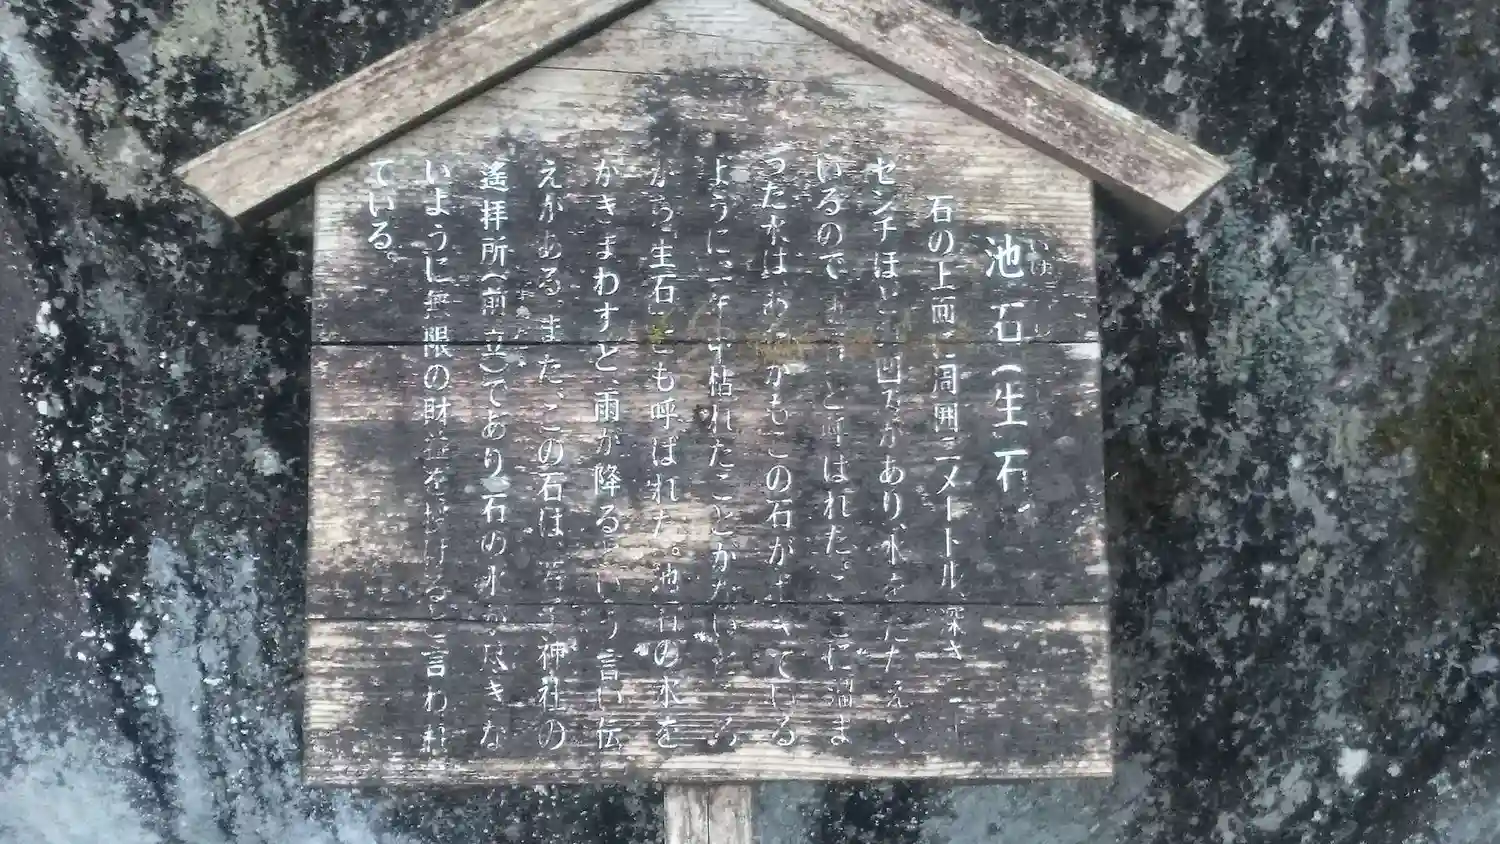 池石(生石)
いけ し
石の上面に周囲三メートル、深さ二十
センチほどの凹みがあり、水をたたえて
いるので と呼ばれた。ここに溜ま
った水は、あたかもこの石が生きている
ように、一年中枯れたことがないところ
から「生石」とも呼ばれた。池石の水を
かきまわすと、雨が降るという言い伝
えがある。また、この石は、 神社の
遙拝所(前立)であり、石の水が尽きな
いように無限の財益を授けると言われ
ている。